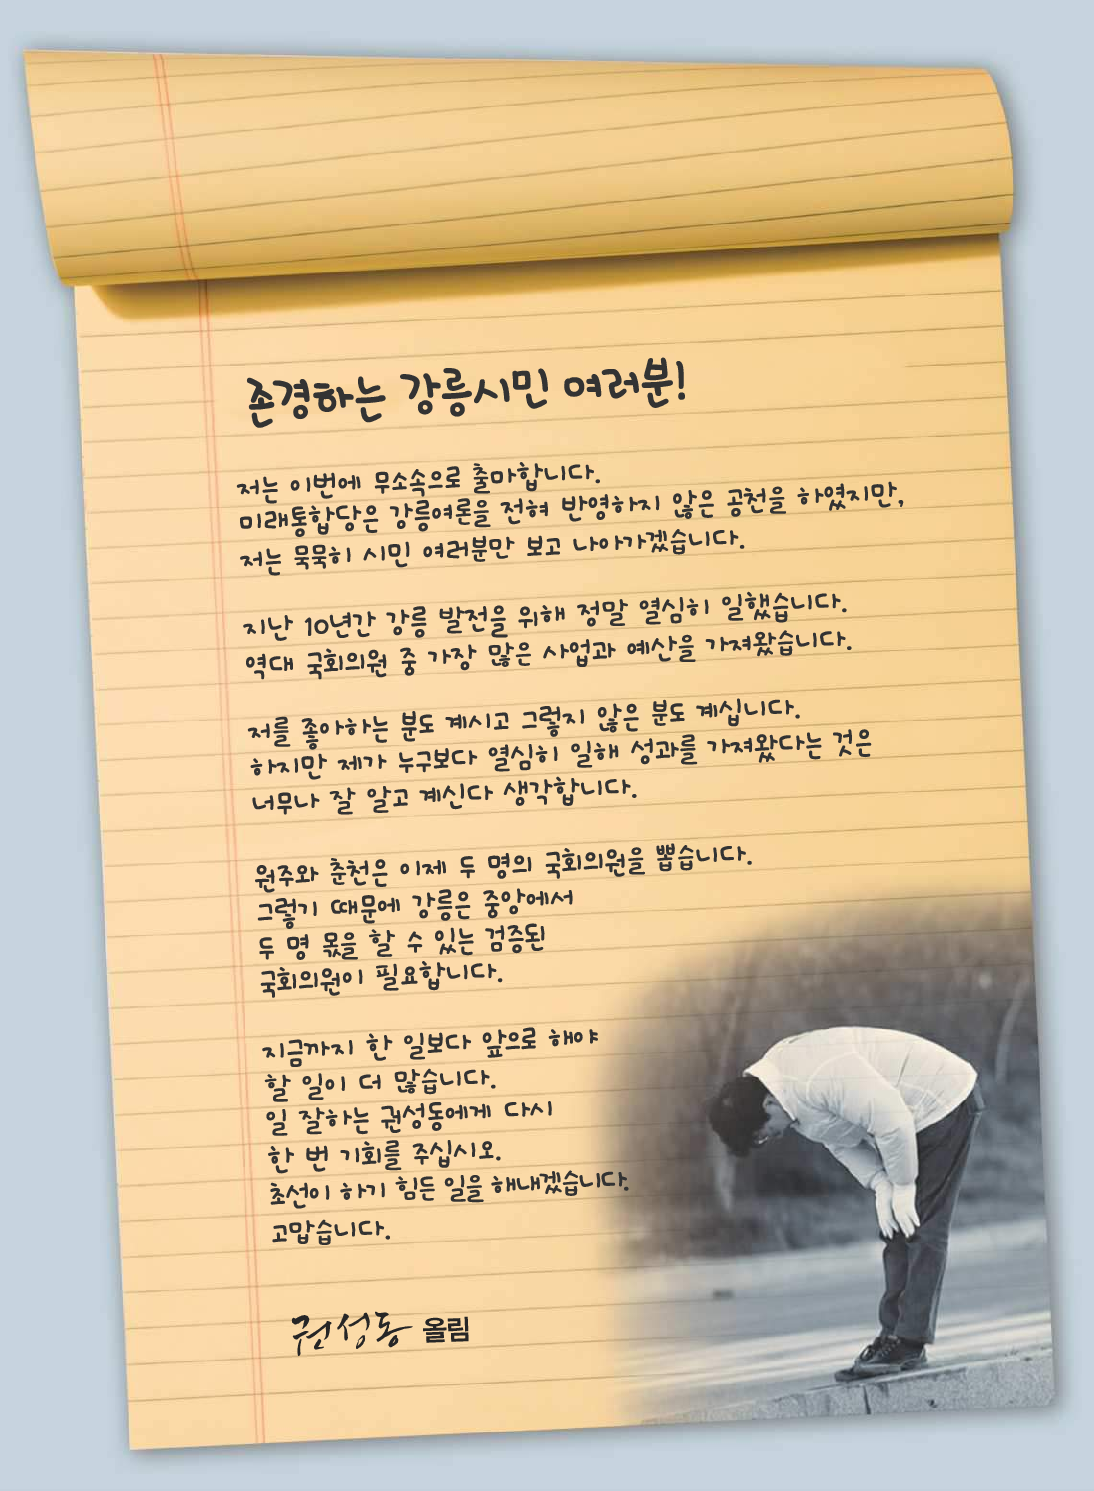 존경하는 강릉시민 여러분!
저는 이번에 무소속으로 출마합니다.
미래통합당은 강릉여론을 전혀 반영하지 않은 공천을 하였지만,
저는 묵묵히 시민 여러분만 보고 나아가겠습니다.
지난 10년간 강릉 발전을 위해 정말 열심히 일했습니다.
역대 국회의원 중 가장 많은 사업과 예산을 가져왔습니다.
저를 좋아하는 분도 계시고 그렇지 않은 분도 계십니다.
하지만 제가 누구보다 열심히 일해 성과를 가져왔다는 것은
너무나 잘 알고 계신다 생각합니다.
원주와 춘천은 이제 두 명의 국회의원을 뽑습니다.
그렇기 때문에 강릉은 중앙에서
두 명 몫을 할 수 있는 검증된
국회의원이 필요합니다.
지금까지 한 일보다 앞으로 해야
할 일이 더 많습니다.
일 잘하는 권성동에게 다시
한 번 기회를 주십시오.
초선이 하기 힘든 일을 해내겠습니다.
고맙습니다.
권성동 올림